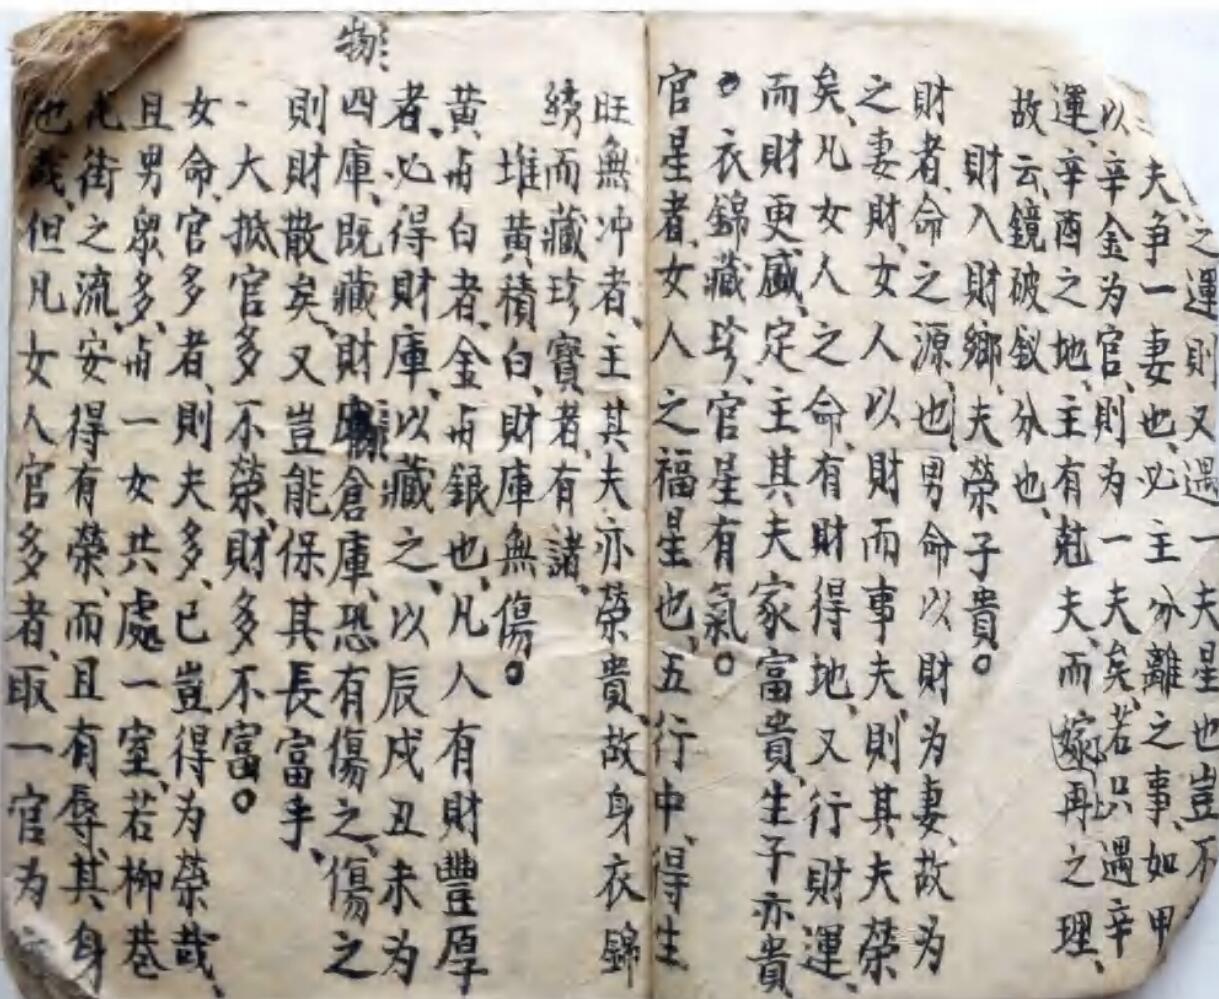 之運則又遇一夫星也豈不
二夫、争一妻也、必主分離之事、如甲
以辛金为官、則为一夫矣、若只遇辛
運、辛酉之地、主有尅夫、而嫁再之理、
故云、鏡破釵分也、
財入財鄉、夫榮子貴。
財者、命之源也、男命以財为妻、故为
之妻財、女人以財而事夫、則其夫榮
矣、凡女人之命、有財得地、又行財運、
而財更盛、定主其夫家富貴、生子亦貴
衣錦藏珍、官星有氣。
官星者、女人之福星也、五行中、得生
旺無冲者、主其夫亦榮貴、故身衣錦
綉而藏珍寶者、有諸、
堆黃積白、財庫無傷。
黃毋白者、金毋銀也、凡人有財豐厚
者、必得財庫、以藏之、以辰戌丑未为
四庫、既藏財物倉庫、恐有傷之、傷之
則財散矣、又豈能保其長富乎、
大抵官多不榮、財多不富。
女命、官多者、則夫多、已豈得为榮哉、
且男眾多、毋一女共處一室、若柳巷
花街之流、安得有榮、而且有辱、其身
也哉、但凡女人官多者、取一官为